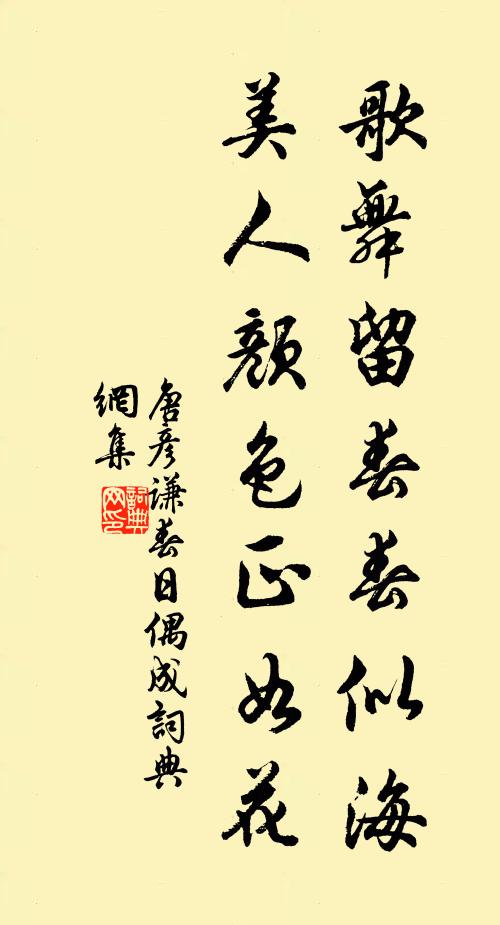 歌舞留春春似海
美人顏色正如花
唐彦謙春日偶成詞典
網集
詞典
网印